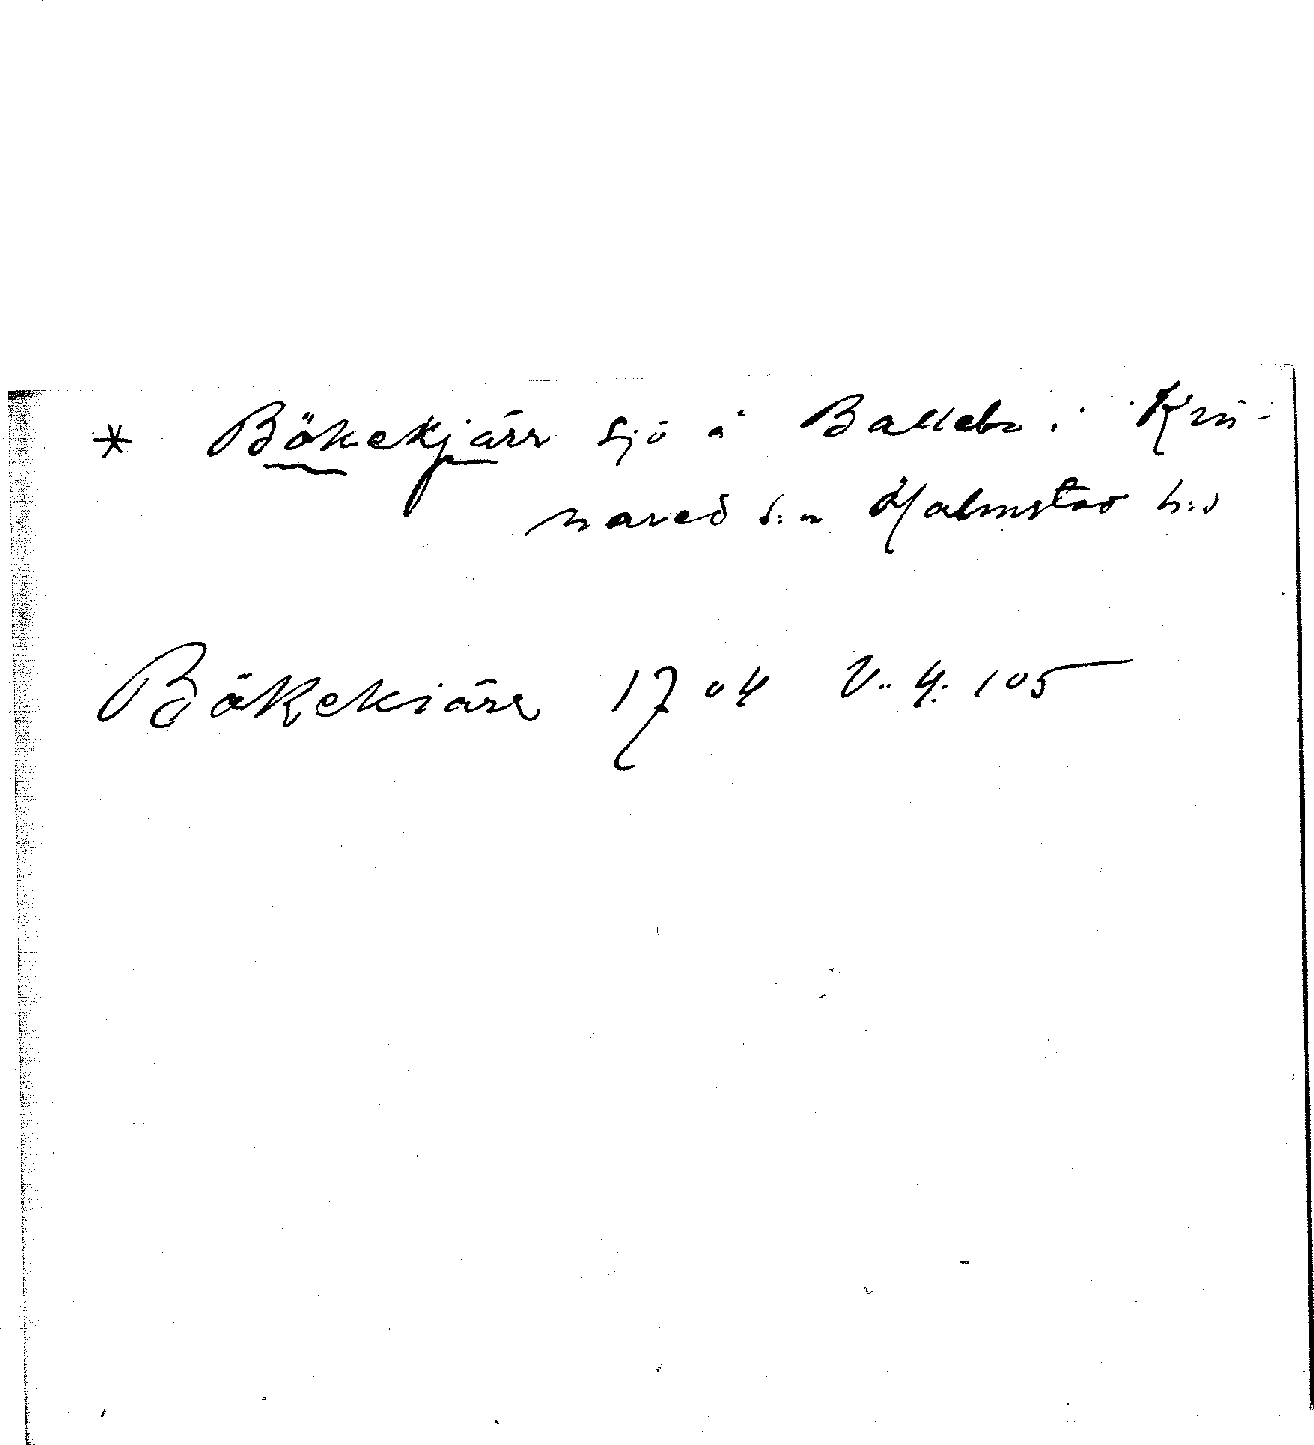 * Bökekjärr sjö å Ballebo i Krü-
nared s:n Halmstad h:d
Bökekiärr 1704 V. 4. 105